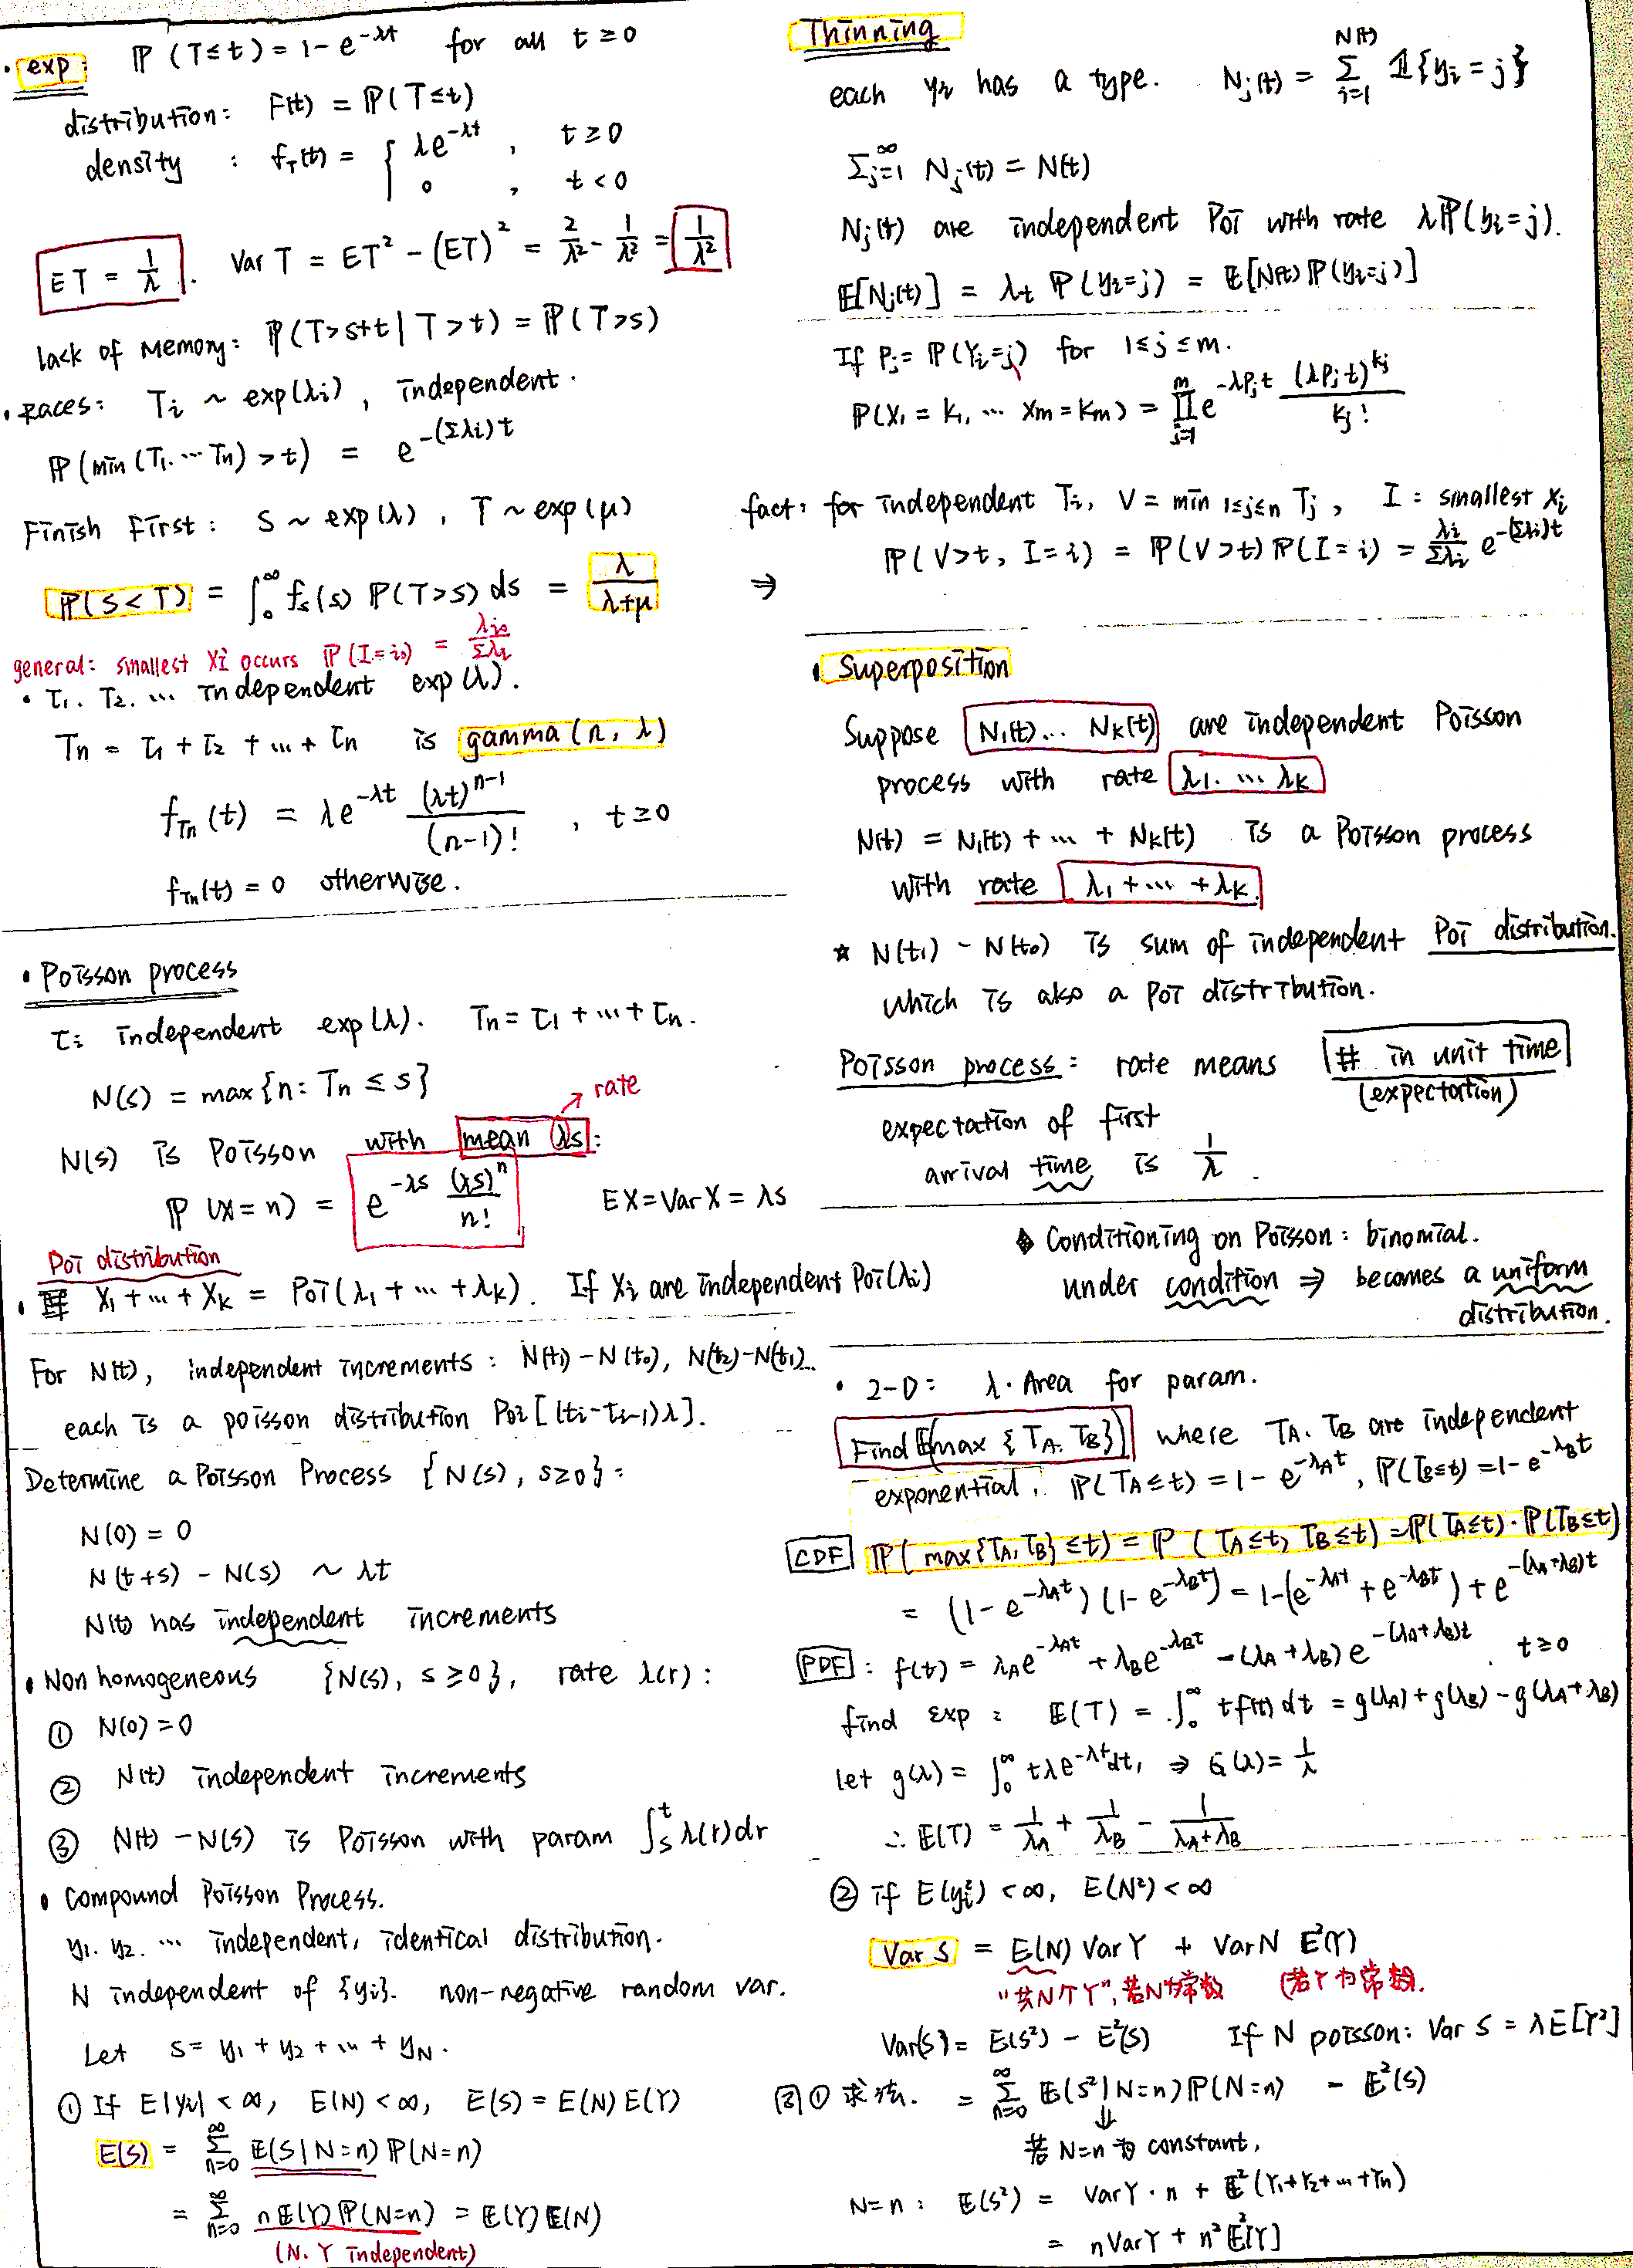 • exp: ℙ(T≤t) = 1 - e^{-λt} for all t ≥ 0
distribution: F(t) = ℙ(T≤t)
density : f_T(t) = { λe^{-λt} , t ≥ 0
0 , t < 0
ET = 1/λ . Var T = ET² - (ET)² = 2/λ² - 1/λ² = 1/λ²
lack of memory: ℙ(T>s+t | T>t) = ℙ(T>s)
• races: T_i ~ exp(λ_i), independent.
ℙ(min(T_1. ... T_n) > t) = e^{-(Σλ_i)t}
Finish First: S ~ exp(λ), T ~ exp(μ)
ℙ(S<T) = ∫_0^∞ f_s(s) ℙ(T>s) ds = λ/(λ+μ)
general: smallest X_i occurs ℙ(I=i_0) = λ_{i_0}/Σλ_i
• τ_1. τ_2. ... independent exp(λ).
T_n = τ_1 + τ_2 + ... + τ_n is gamma(n, λ)
f_{T_n}(t) = λe^{-λt} (λt)^{n-1}/(n-1)! , t ≥ 0
f_{T_n}(t) = 0 otherwise.
• Poisson process
τ_i independent exp(λ). T_n = τ_1 + ... + τ_n.
N(s) = max{n: T_n ≤ s}
rate
N(s) is Poisson with mean λs:
ℙ(X=n) = e^{-λs} (λs)^n/n! EX = Var X = λs
Poi distribution
• X_1 + ... + X_k = Poi(λ_1 + ... + λ_k). If X_i are independent Poi(λ_i)
For N(t), independent increments: N(t_1) - N(t_0), N(t_2) - N(t_1)...
each is a poisson distribution Poi[(t_i - t_{i-1})λ].
Determine a Poisson Process {N(s), s≥0}:
N(0) = 0
N(t+s) - N(s) ~ λt
N(t) has independent increments
• Non homogeneous {N(s), s ≥ 0}, rate λ(r):
① N(0) = 0
② N(t) independent increments
③ N(t) - N(s) is Poisson with param ∫_s^t λ(r)dr
• Compound Poisson Process.
y_1. y_2. ... independent, identical distribution.
N independent of {y_i}. non-negative random var.
Let S = y_1 + y_2 + ... + y_N.
① If E|y_i| < ∞, E(N) < ∞, E(S) = E(N) E(Y)
E(S) = Σ_{n=0}^∞ E(S | N=n) ℙ(N=n)
= Σ_{n=0}^∞ n E(Y) ℙ(N=n) = E(Y) E(N)
(N. Y independent)
Thinning
each y_i has a type. N_j(t) = Σ_{i=1}^{N(t)} 𝟙{y_i = j}
Σ_{j=1}^∞ N_j(t) = N(t)
N_j(t) are independent Poi with rate λℙ(y_i=j).
E[N_j(t)] = λt ℙ(y_i=j) = E[N(t) ℙ(y_i=j)]
If P_j = ℙ(Y_i=j) for 1≤j≤m.
ℙ(X_1 = k_1, ... X_m = k_m) = Π_{j=1}^m e^{-λP_j t} (λP_j t)^{k_j}/k_j!
fact: for independent T_i, V = min_{1≤j≤n} T_j, I: smallest X_i
⇒ ℙ(V>t, I=i) = ℙ(V>t) ℙ(I=i) = λ_i/Σλ_i e^{-(Σλ_i)t}
• Superposition
Suppose N_1(t)... N_k(t) are independent Poisson
process with rate λ_1. ... λ_k
N(t) = N_1(t) + ... + N_k(t) is a Poisson process
with rate λ_1 + ... + λ_k.
★ N(t_1) - N(t_0) is sum of independent Poi distribution.
which is also a Poi distribution.
Poisson process: rate means # in unit time
(expectation)
expectation of first
arrival time is 1/λ.
◆ Conditioning on Poisson: binomial.
under condition ⇒ becomes a uniform
distribution.
• 2-D: λ·Area for param.
Find E(max{T_A. T_B}) where T_A. T_B are independent
exponential. ℙ(T_A≤t) = 1 - e^{-λ_A t}, ℙ(T_B≤t) = 1 - e^{-λ_B t}
CDF ℙ(max{T_A, T_B} ≤ t) = ℙ(T_A≤t, T_B≤t) = ℙ(T_A≤t)·ℙ(T_B≤t)
= (1 - e^{-λ_A t})(1 - e^{-λ_B t}) = 1 - (e^{-λ_A t} + e^{-λ_B t}) + e^{-(λ_A+λ_B)t}
PDF: f(t) = λ_A e^{-λ_A t} + λ_B e^{-λ_B t} - (λ_A + λ_B) e^{-(λ_A+λ_B)t}, t ≥ 0
find exp: E(T) = ∫_0^∞ t f(t) dt = g(λ_A) + g(λ_B) - g(λ_A + λ_B)
let g(λ) = ∫_0^∞ tλe^{-λt} dt, ⇒ G(λ) = 1/λ
∴ E(T) = 1/λ_A + 1/λ_B - 1/(λ_A+λ_B)
② if E(y_i²) < ∞, E(N²) < ∞
Var S = E(N) Var Y + Var N E²(Y)
"共N个Y", 若N为常数 (若Y为常数.
Var(S) = E(S²) - E²(S) If N poisson: Var S = λE[Y²]
同① 求法. = Σ_{n=0}^∞ E(S² | N=n) ℙ(N=n) - E²(S)
↓
若 N=n 为 constant,
N=n: E(S²) = Var Y · n + E²(Y_1+Y_2+...+Y_n)
= n Var Y + n² E²[Y]